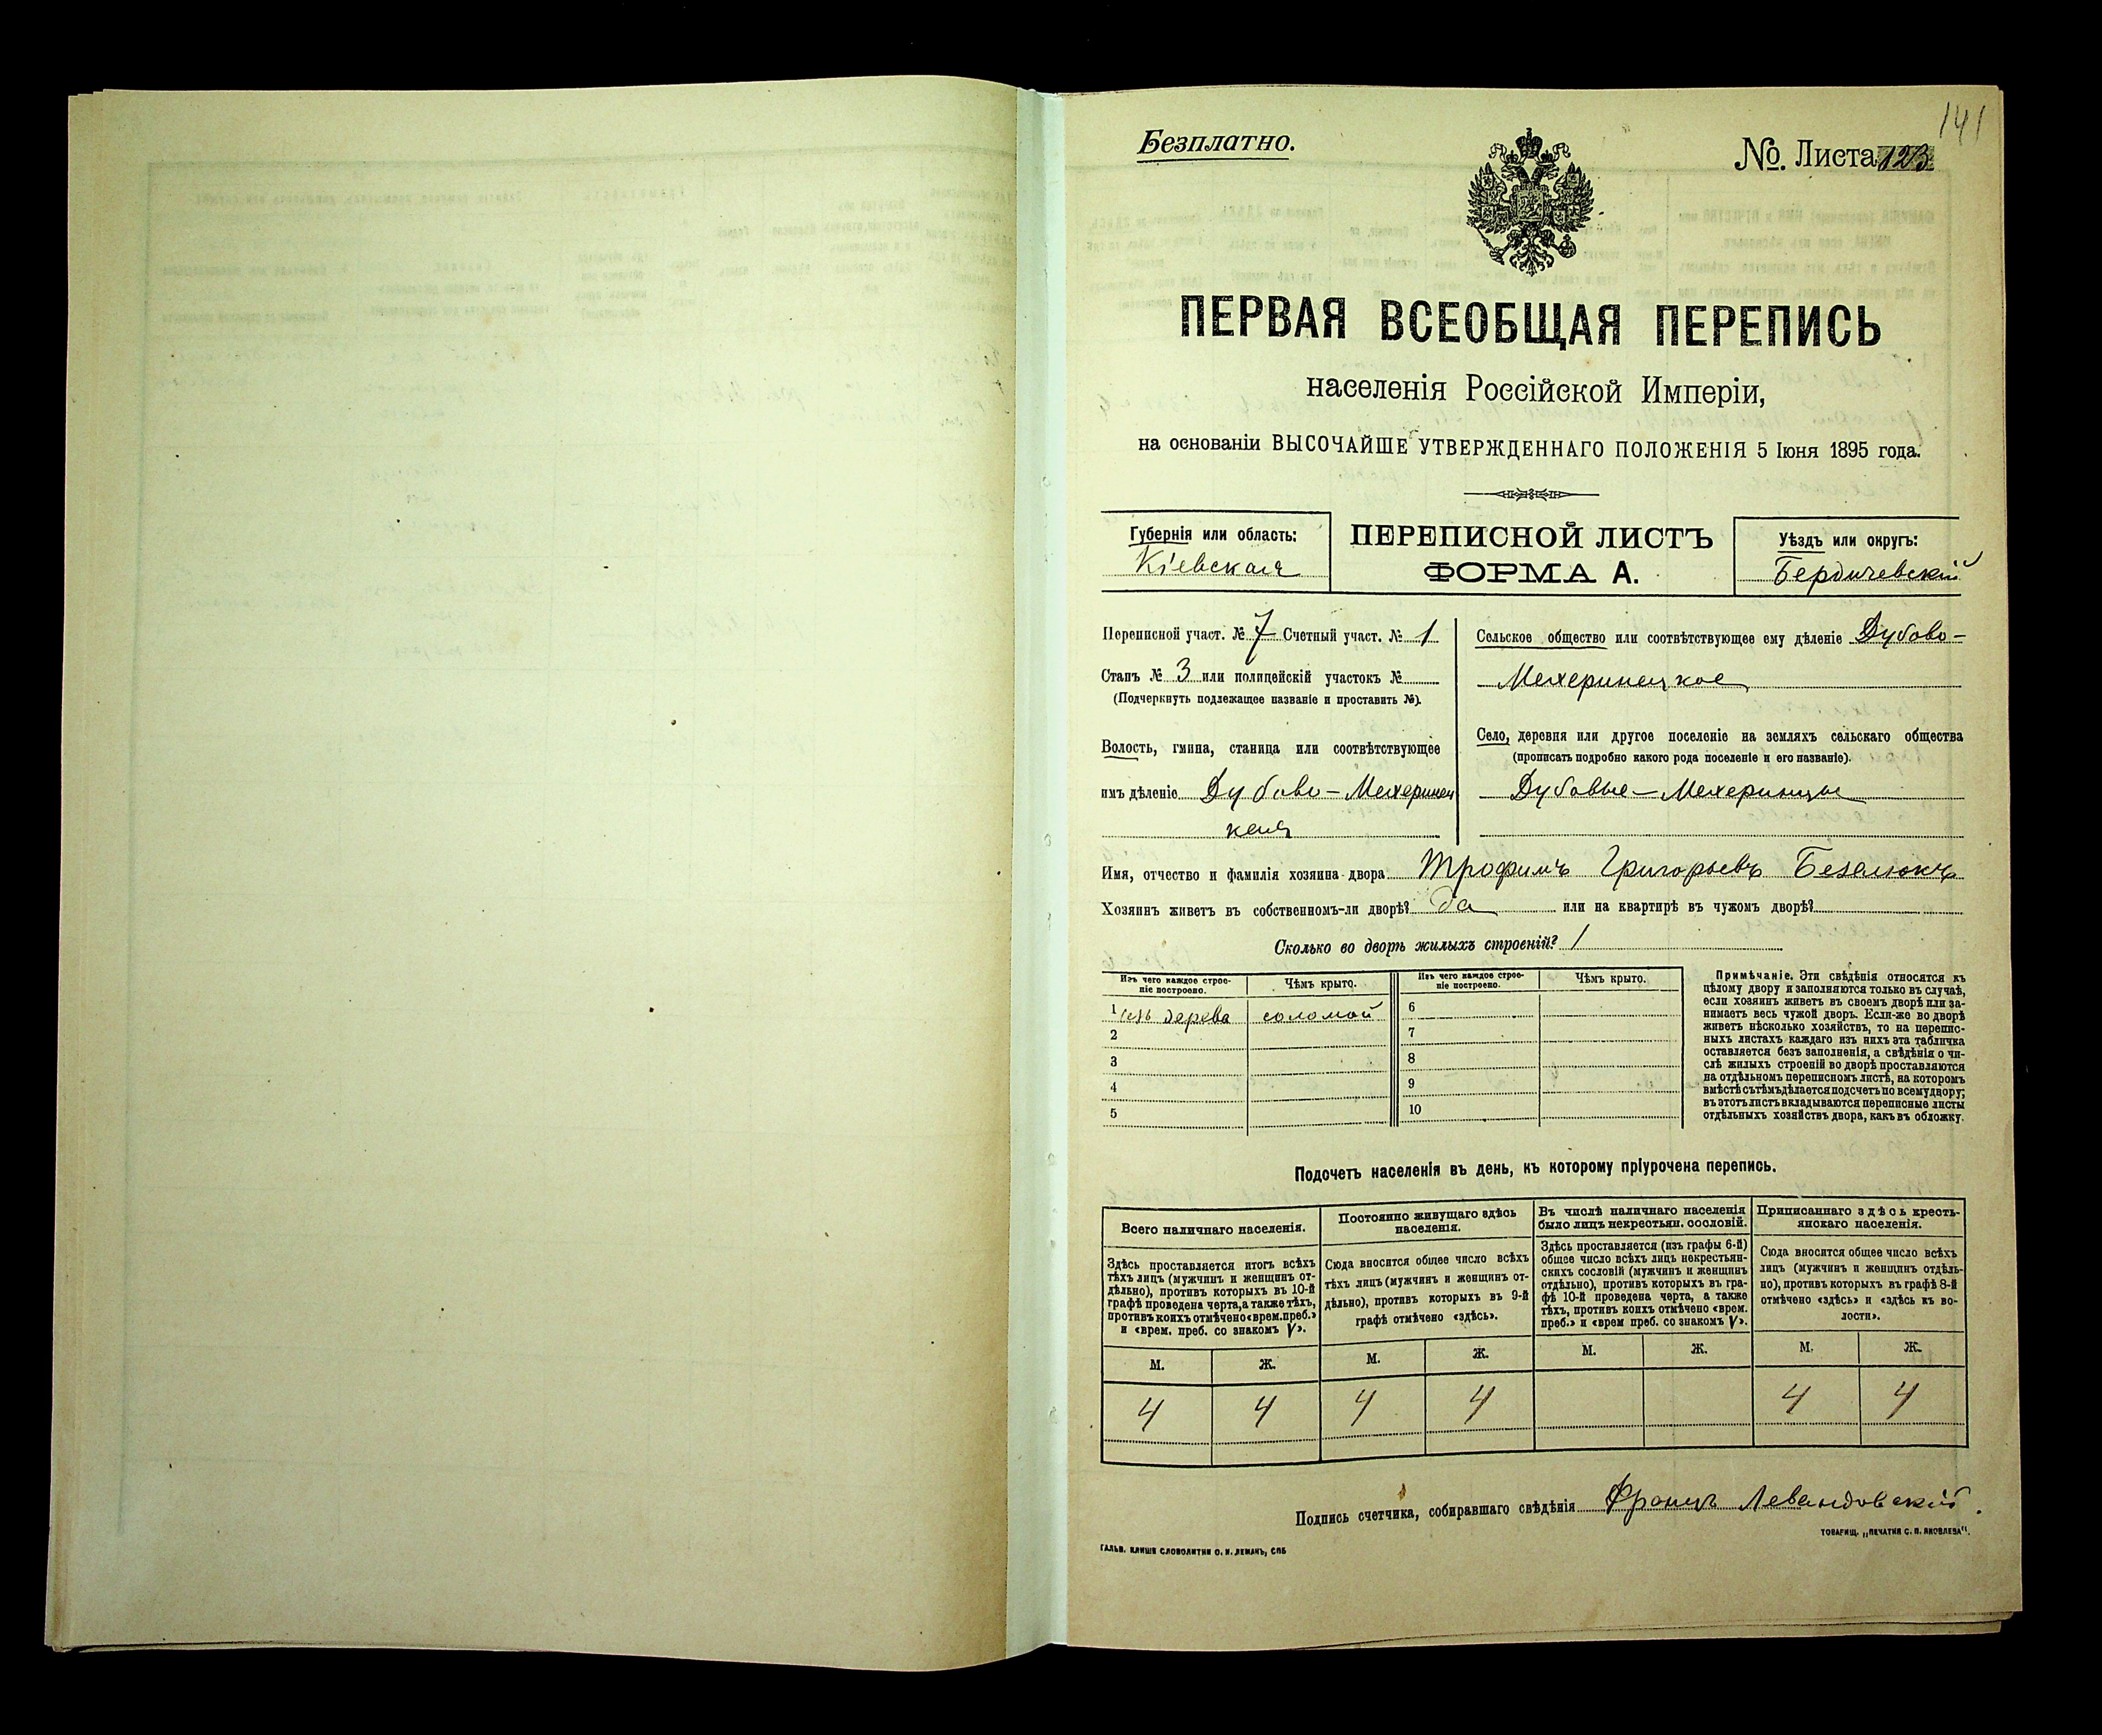 141
Безплатно.
№ Листа 123
ПЕРВАЯ ВСЕОБЩАЯ ПЕРЕПИСЬ
населенія Россійской Имперіи,
на основаніи ВЫСОЧАЙШЕ УТВЕРЖДЕННАГО ПОЛОЖЕНІЯ 5 Іюня 1895 года.
Губернія или область:
Кіевская
ПЕРЕПИСНОЙ ЛИСТЪ
ФОРМА А.
Уѣздъ или округъ:
Бердичевскій
Переписной участ. № 7 Счетный участ. № 1
Станъ № 3 или полицейскій участокъ №
(Подчеркнуть подлежащее названіе и проставить №).
Волость, гмина, станица или соотвѣтствующее
имъ дѣленіе Дубово-Мехеринец
кая
Сельское общество или соотвѣтствующее ему дѣленіе Дубово-
Мехеринецкое
Село, деревня или другое поселеніе на земляхъ сельскаго общества
(прописать подробно какого рода поселеніе и его названіе).
Дубовые-Мехеринцы
Имя, отчество и фамилія хозяина двора Трофимъ Григорьевъ Безелюкъ
Хозяинъ живетъ въ собственномъ-ли дворѣ? да или на квартирѣ въ чужомъ дворѣ?
Сколько во дворѣ жилыхъ строеній? 1
Изъ чего каждое строе-
ніе построено.
Чѣмъ крыто.
Изъ чего каждое строе-
ніе построено.
Чѣмъ крыто.
1 изъ дерева соломой
2
3
4
5
6
7
8
9
10
Примѣчаніе. Эти свѣдѣнія относятся къ
цѣлому двору и заполняются только въ случаѣ,
если хозяинъ живетъ въ своемъ дворѣ или за-
нимаетъ весь чужой дворъ. Если-же во дворѣ
живетъ нѣсколько хозяйствъ, то на перепис-
ныхъ листахъ каждаго изъ нихъ эта табличка
оставляется безъ заполненія, а свѣдѣнія о чи-
слѣ жилыхъ строеній во дворѣ проставляются
на отдѣльномъ переписномъ листѣ, на которомъ
вмѣстѣ съ тѣмъ дѣлается подсчетъ по всему двору;
въ этотъ листъ вкладываются переписные листы
отдѣльныхъ хозяйствъ двора, какъ въ обложку.
Подсчетъ населенія въ день, къ которому пріурочена перепись.
Всего наличнаго населенія.
Здѣсь проставляется итогъ всѣхъ
тѣхъ лицъ (мужчинъ и женщинъ от-
дѣльно), противъ которыхъ въ 10-й
графѣ проведена черта, а также тѣхъ,
противъ коихъ отмѣчено «врем. преб.»
и «врем. преб. со знакомъ V».
Постоянно живущаго здѣсь
населенія.
Сюда вносится общее число всѣхъ
тѣхъ лицъ (мужчинъ и женщинъ от-
дѣльно), противъ которыхъ въ 9-й
графѣ отмѣчено «здѣсь».
Въ числѣ наличнаго населенія
было лицъ некрестьян. сословій.
Здѣсь проставляется (изъ графы 6-й)
общее число всѣхъ лицъ некрестьян-
скихъ сословій (мужчинъ и женщинъ
отдѣльно), противъ которыхъ въ гра-
фѣ 10-й проведена черта, а также
тѣхъ, противъ коихъ отмѣчено «врем.
преб.» и «врем преб. со знакомъ V».
Приписаннаго здѣсь кресть-
янскаго населенія.
Сюда вносится общее число всѣхъ
лицъ (мужчинъ и женщинъ отдѣль-
но), противъ которыхъ въ графѣ 8-й
отмѣчено «здѣсь» и «здѣсь къ во-
лости».
М. Ж. М. Ж. М. Ж. М. Ж.
4 4 4 4 4 4
Подпись счетчика, собиравшаго свѣдѣнія Францъ Левандовскій.
ТОВАРИЩ. „ПЕЧАТНЯ С. П. ЯКОВЛЕВА".
ГАЛЬВ. КЛИШЕ СЛОВОЛИТНИ О. И. ЛЕМАНЪ, СПБ